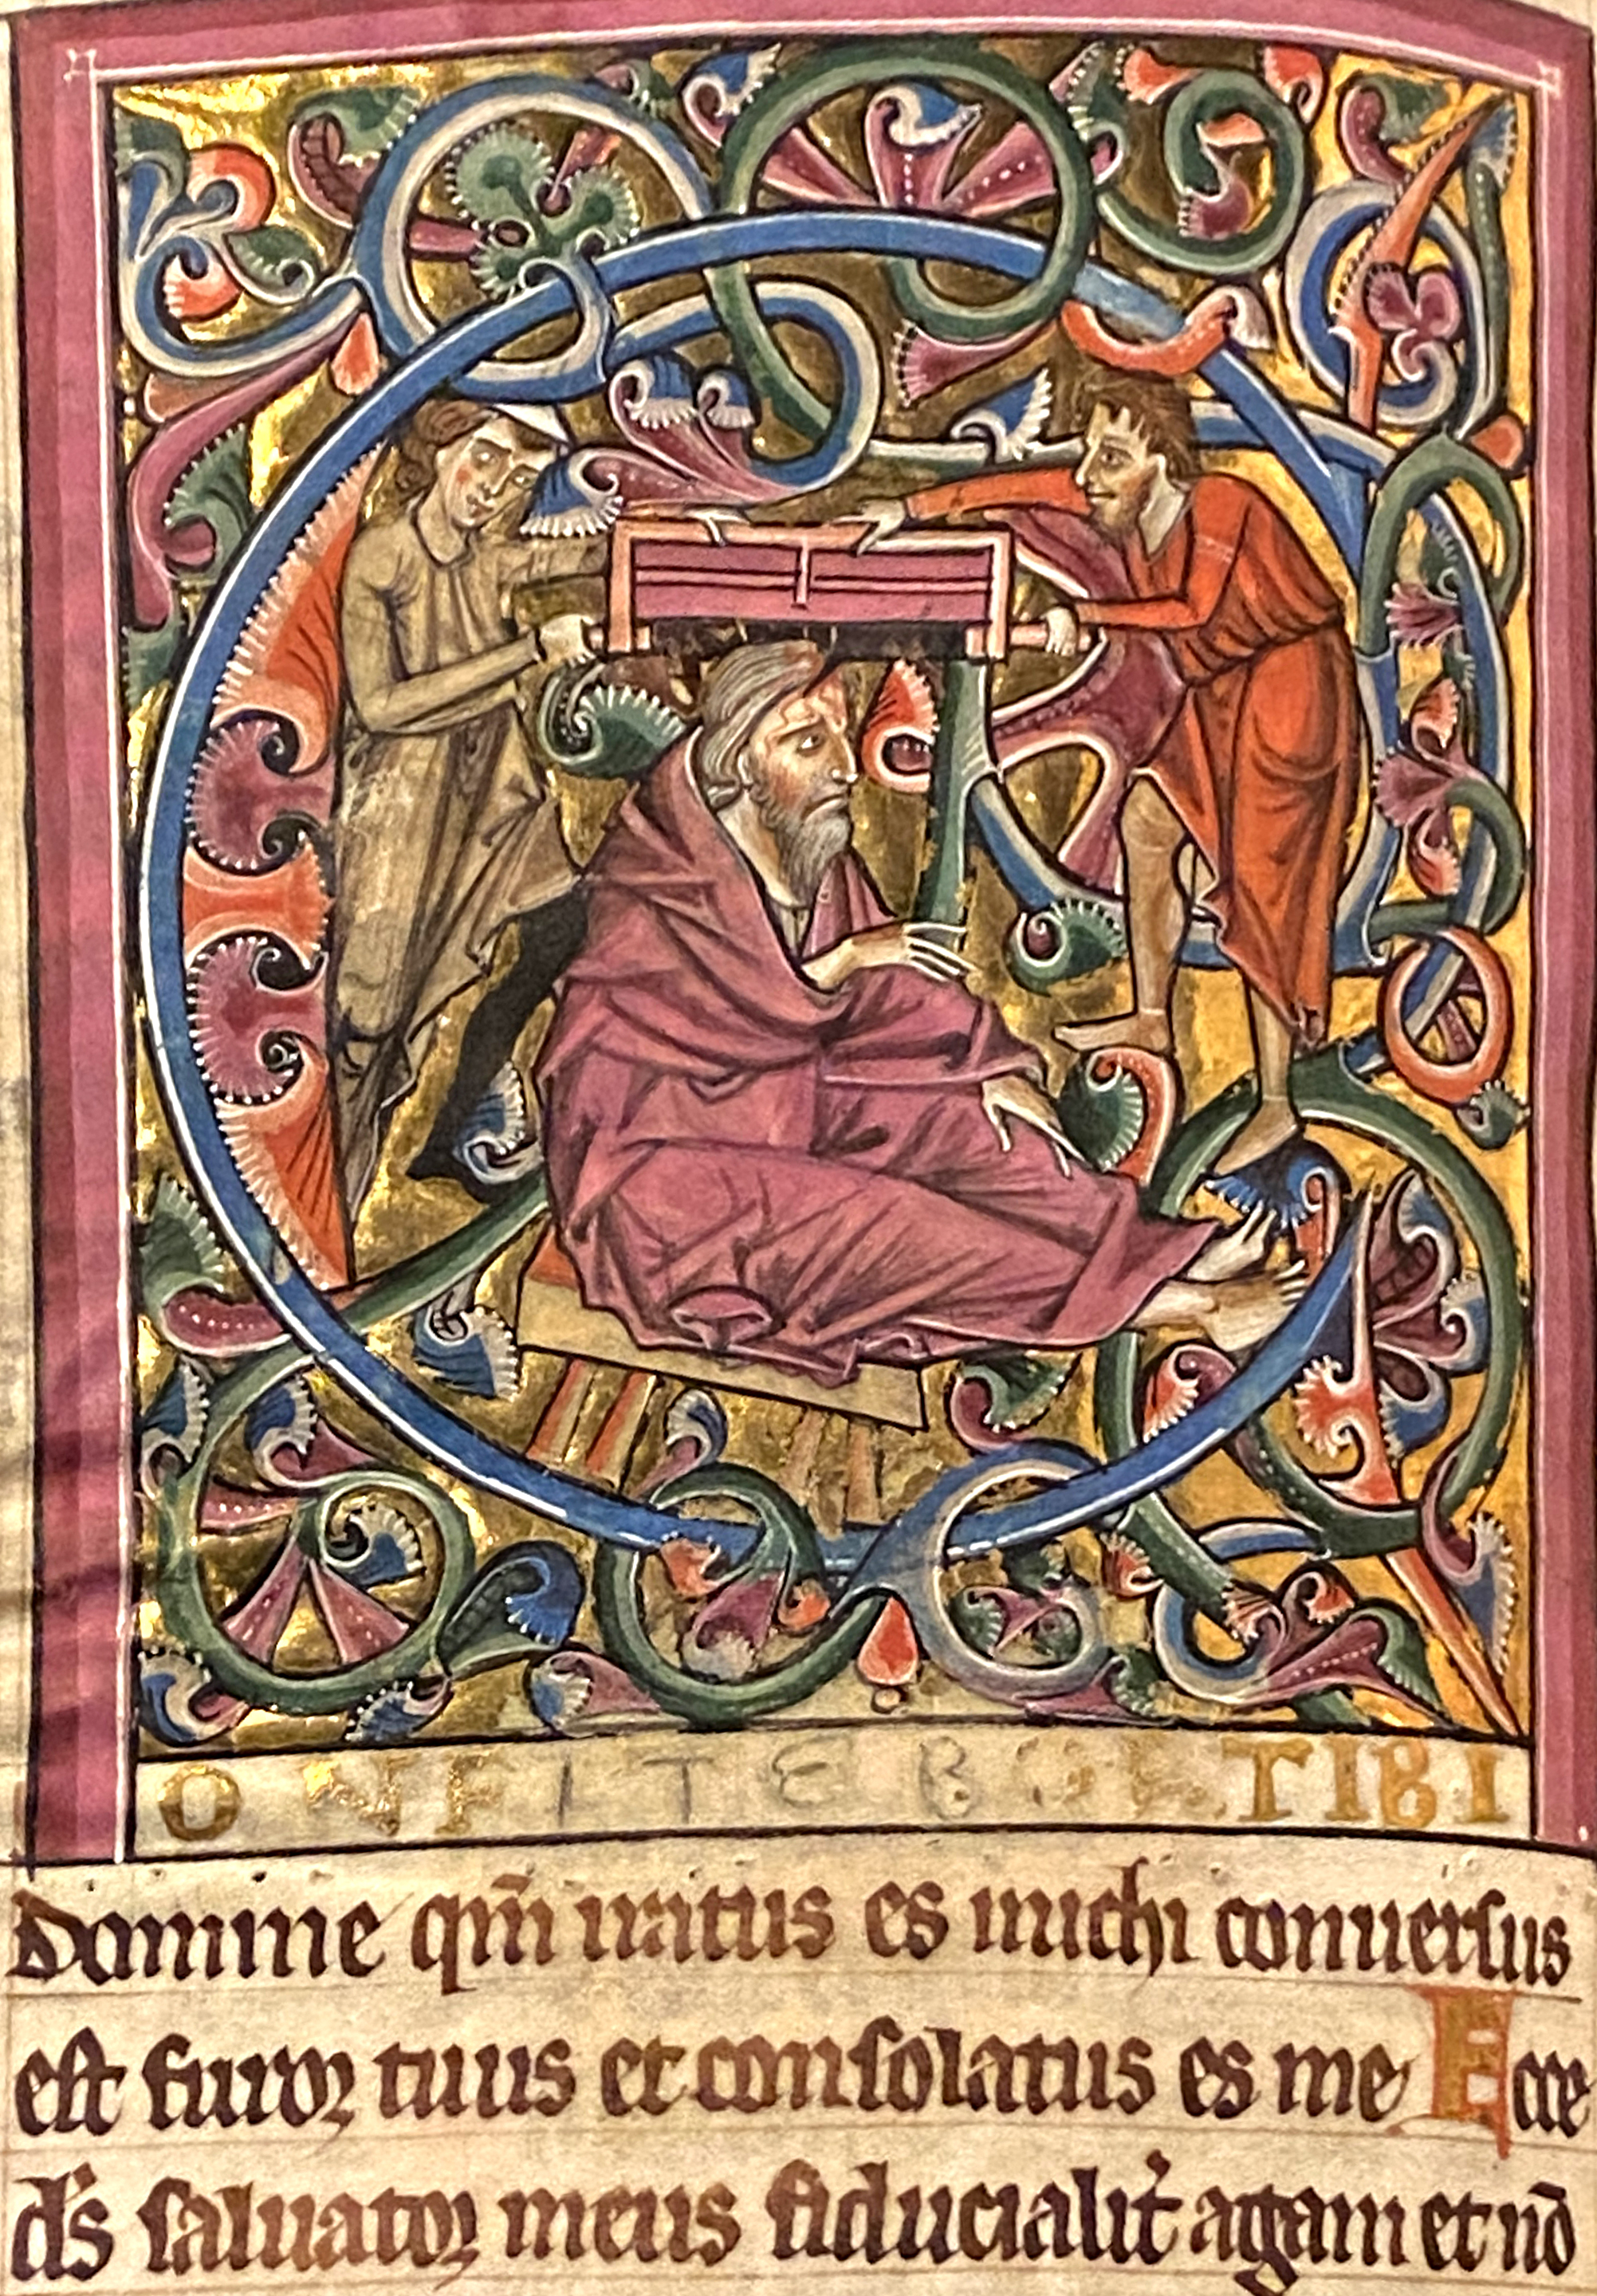 C
ONFITEBOR TIBI
domine qm̄ iratus es michi conuersus
est furor tuus et consolatus es me Ecce
ds̄ saluator meus fiducialit̉ agam et nō